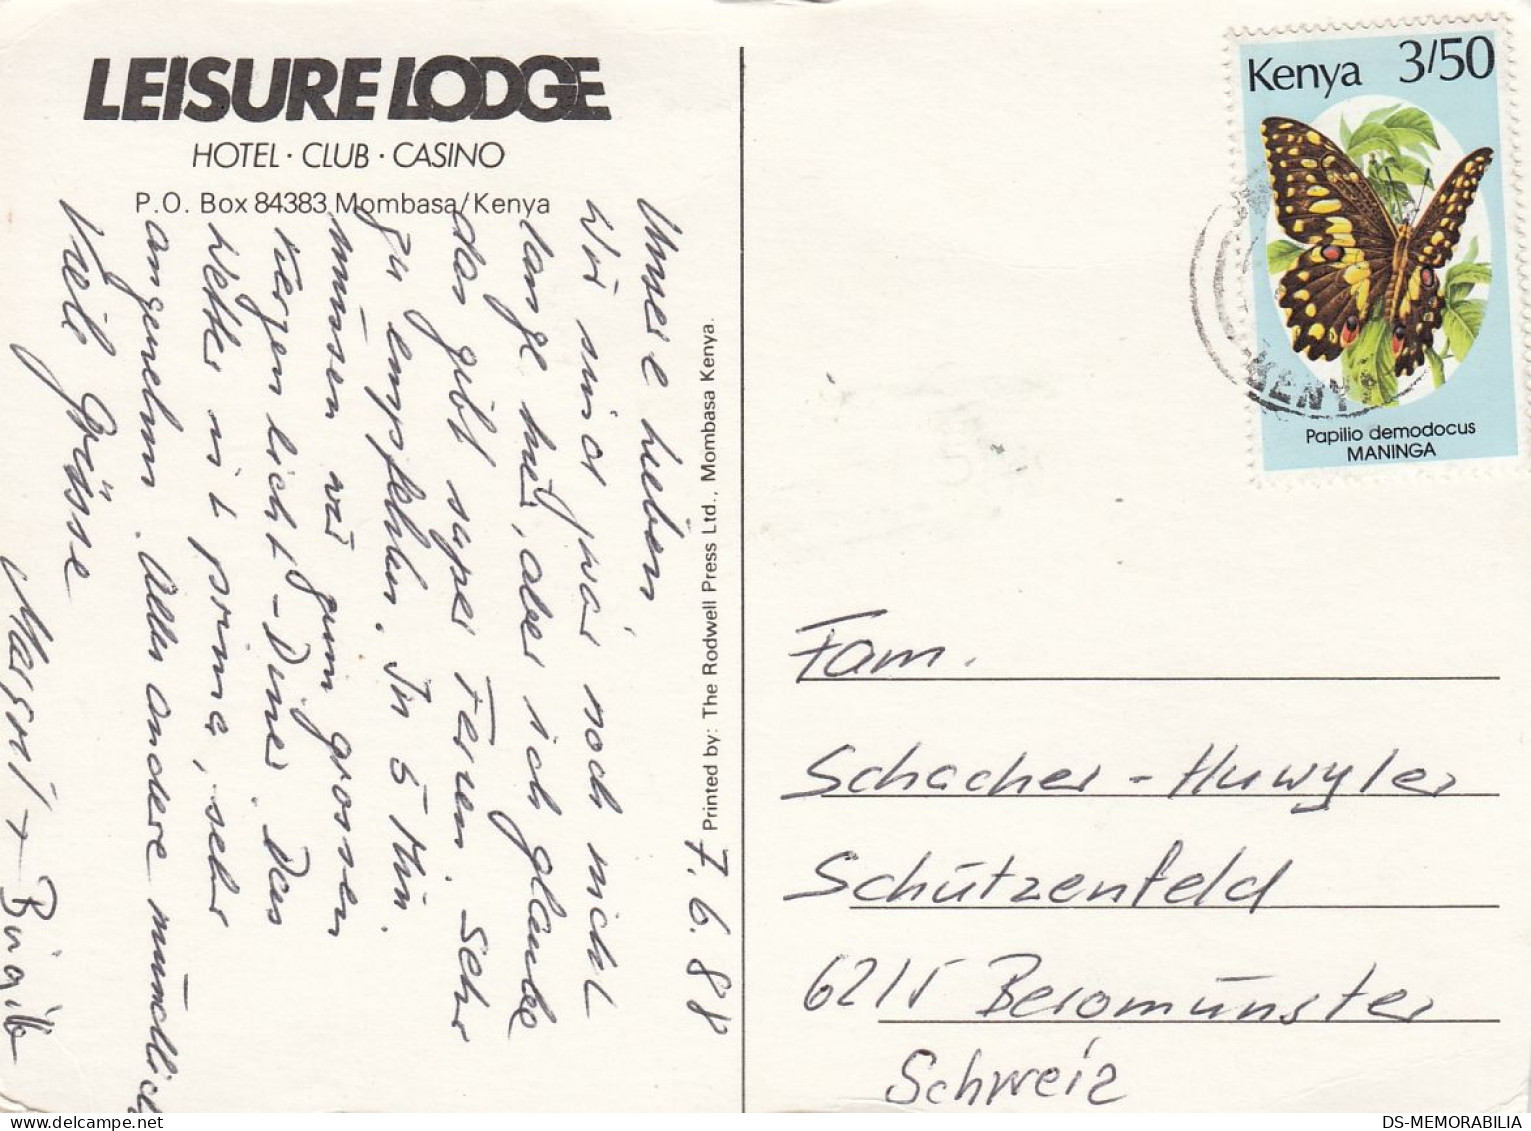 LEISURE LODGE
HOTEL · CLUB · CASINO
P.O. Box 84383 Mombasa/Kenya
7.6.88
Unsere Lieben,
Wir sind zwar noch nicht
lange hier, aber ich glaube
das gibt super Ferien. Sehr
zu empfehlen. In 5 Min.
müssen wir zum grossen
Diner. Das
Wetter ist prima, sehr
angenehm. Alles andere mündlich
Viele Grüsse
Margrit +
Printed by: The Rodwell Press Ltd., Mombasa Kenya.
Kenya 3/50
KENYA
Papilio demodocus
MANINGA
Fam.
Schacher-Huwyler
Schützenfeld
6215 Beromünster
Schweiz
DS-MEMORABILIA